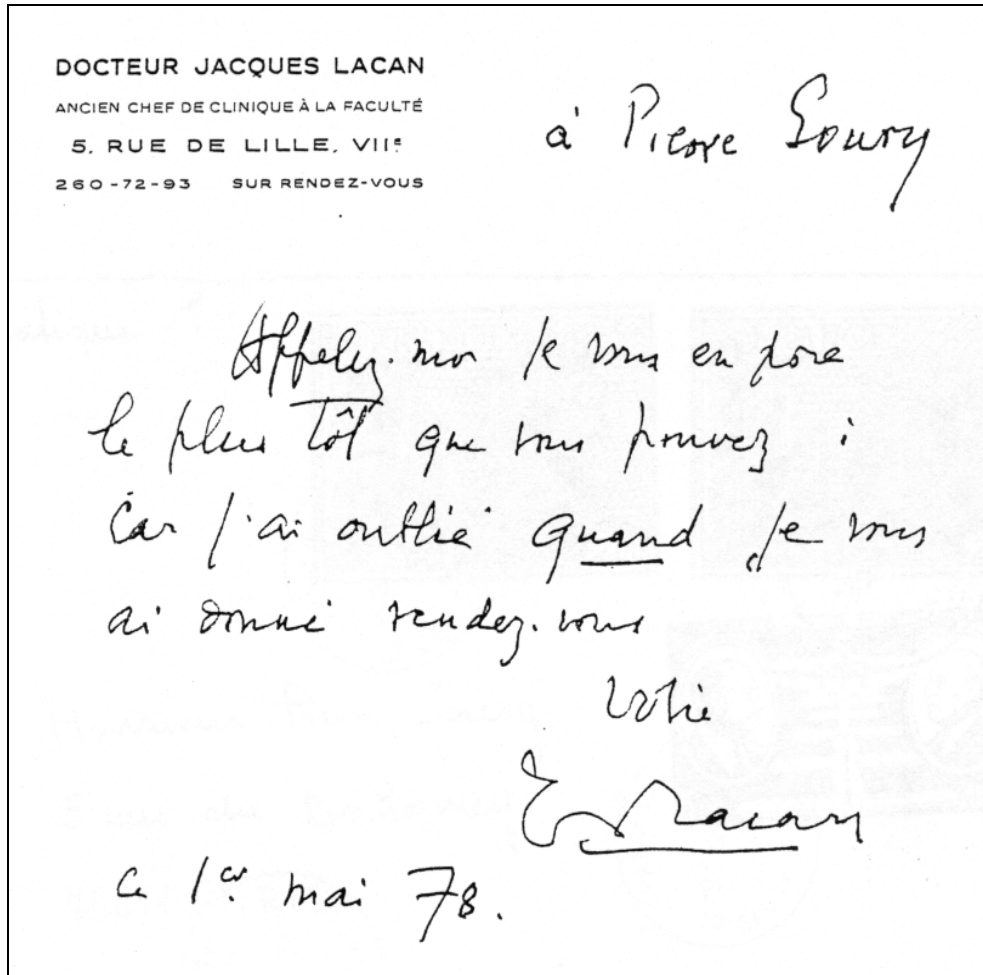 DOCTEUR JACQUES LACAN
ANCIEN CHEF DE CLINIQUE À LA FACULTÉ
5, RUE DE LILLE, VIIᵉ
260-72-93 SUR RENDEZ-VOUS
à Pierre Soury
Appelez-moi je vous en prie
le plus tôt que vous pouvez :
Car j'ai oublié quand je vous
ai donné rendez-vous
Votre
Lacan
Ce 1er mai 78.